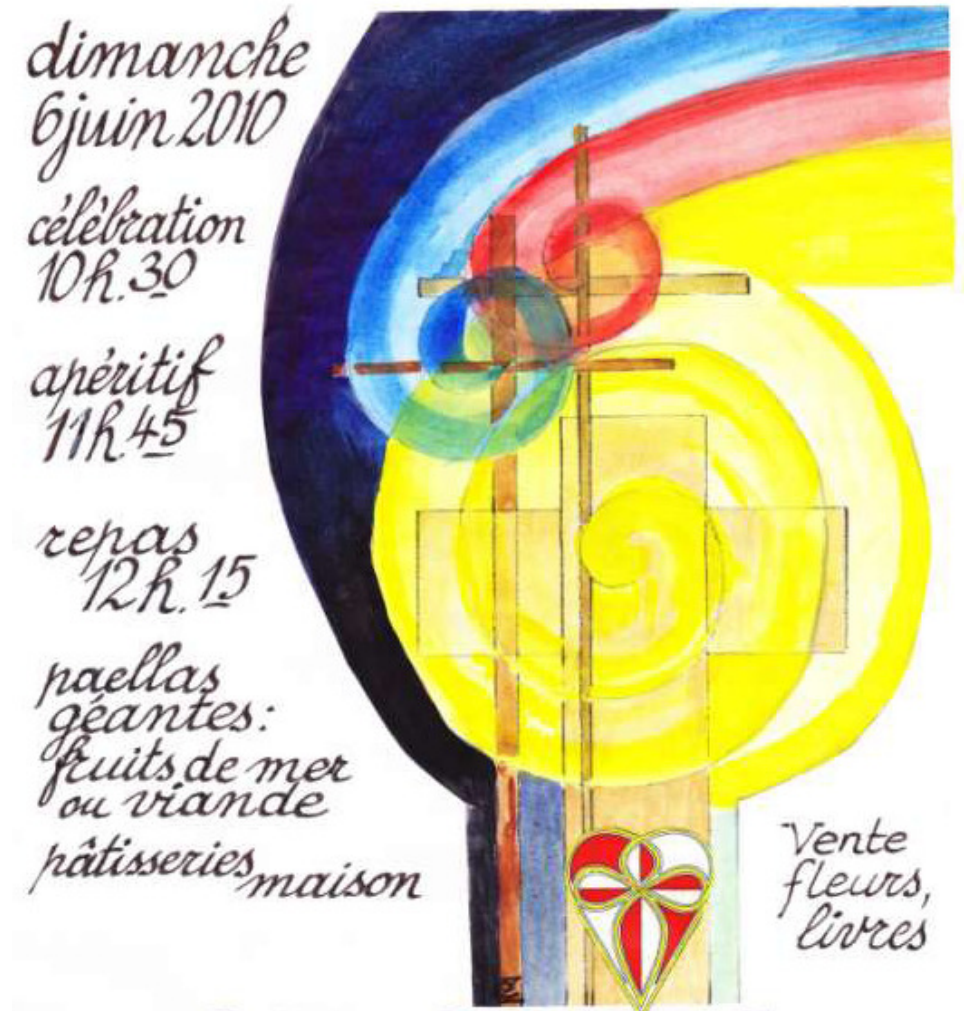 dimanche
6 juin 2010
célèbration
10h.30
apéritif
11h.45
repas
12h.15
paellas
géantes:
fruits de mer
ou viande
pâtisseries maison
Vente
fleurs,
livres